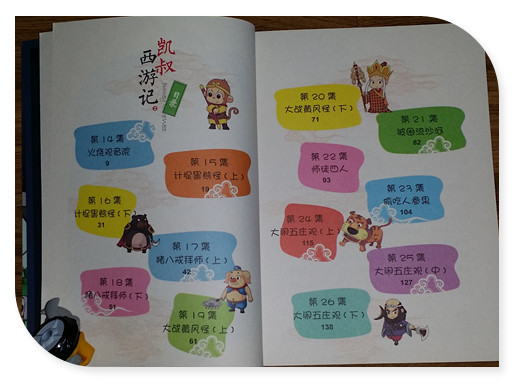 凯叔
西游记
2
目录
第14集
火烧观音院
9
第15集
计捉黑熊怪（上）
19
第16集
计捉黑熊怪（下）
31
第17集
猪八戒拜师（上）
42
第18集
猪八戒拜师（下）
51
第19集
大战黄风怪（上）
61
第20集
大战黄风怪（下）
71
第21集
被困流沙河
82
第22集
师徒四人
93
第23集
偷吃人参果
104
第24集
大闹五庄观（上）
115
第25集
大闹五庄观（中）
127
第26集
大闹五庄观（下）
138